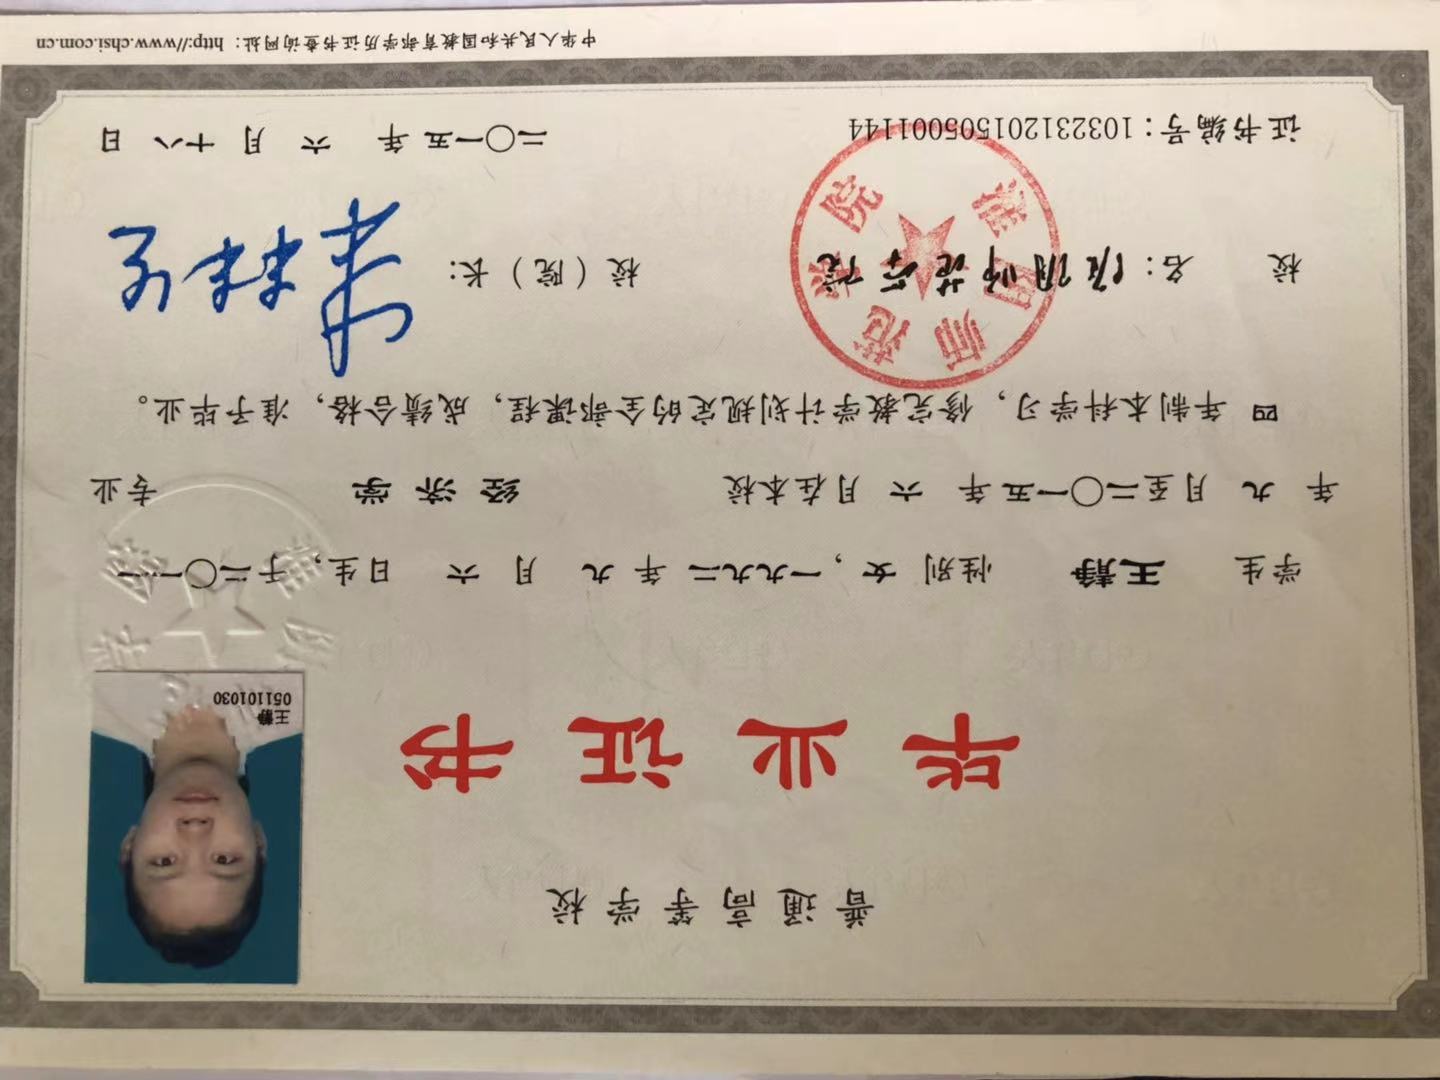 普通高等学校
毕业证书
王静
051101030
学生 王静 性别 女，一九九二年 九 月 六 日生，于二〇一一
年 九 月至二〇一五年 六 月在本校 经济学 专业
四 年制本科学习，修完教学计划规定的全部课程，成绩合格，准予毕业。
校 名：淮阴师范学院 校（院）长：
淮阴师范学院
证书编号：103231201505001144 二〇一五年 六 月 十八 日
中华人民共和国教育部学历证书查询网址：http://www.chsi.com.cn